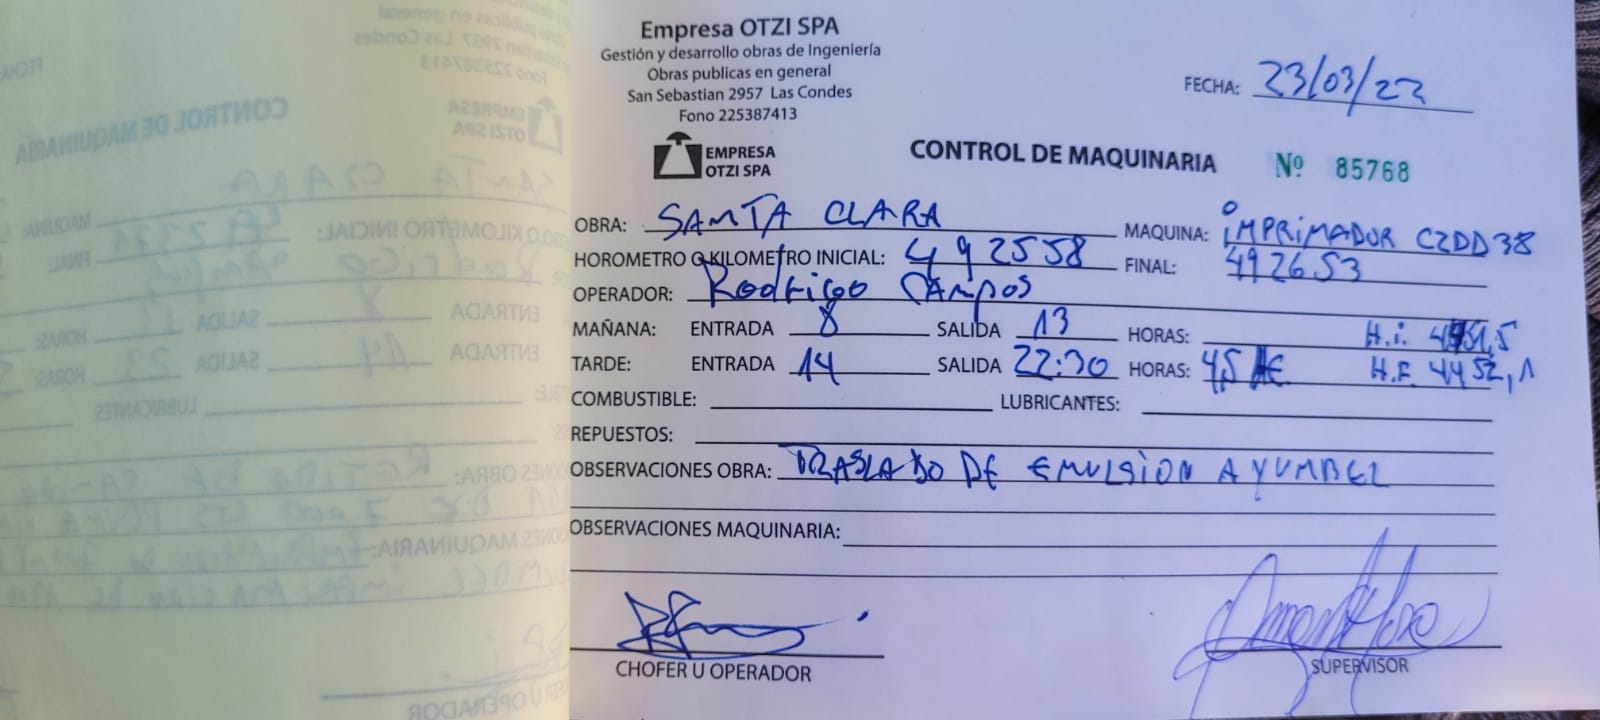 Empresa OTZI SPA
Gestión y desarrollo obras de Ingeniería
Obras publicas en general
San Sebastian 2957 Las Condes
Fono 225387413
FECHA: 23/03/22
EMPRESA
OTZI SPA
CONTROL DE MAQUINARIA Nº 85768
OBRA: SANTA CLARA MAQUINA: IMPRIMADOR CZDD38
HOROMETRO O KILOMETRO INICIAL: 492558 FINAL: 492653
OPERADOR: Rodrigo Campos
MAÑANA: ENTRADA 8 SALIDA 13 HORAS: H.i.
TARDE: ENTRADA 14 SALIDA 22:30 HORAS: 4,5 H.F. 4452,1
COMBUSTIBLE: LUBRICANTES:
REPUESTOS:
OBSERVACIONES OBRA: TRASLADO DE EMULSION A YUMBEL
OBSERVACIONES MAQUINARIA:
CHOFER U OPERADOR
SUPERVISOR